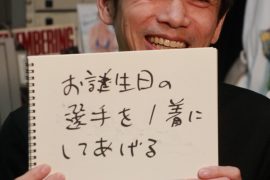 MBERING
お誕生日の
選手を1着に
してあげる